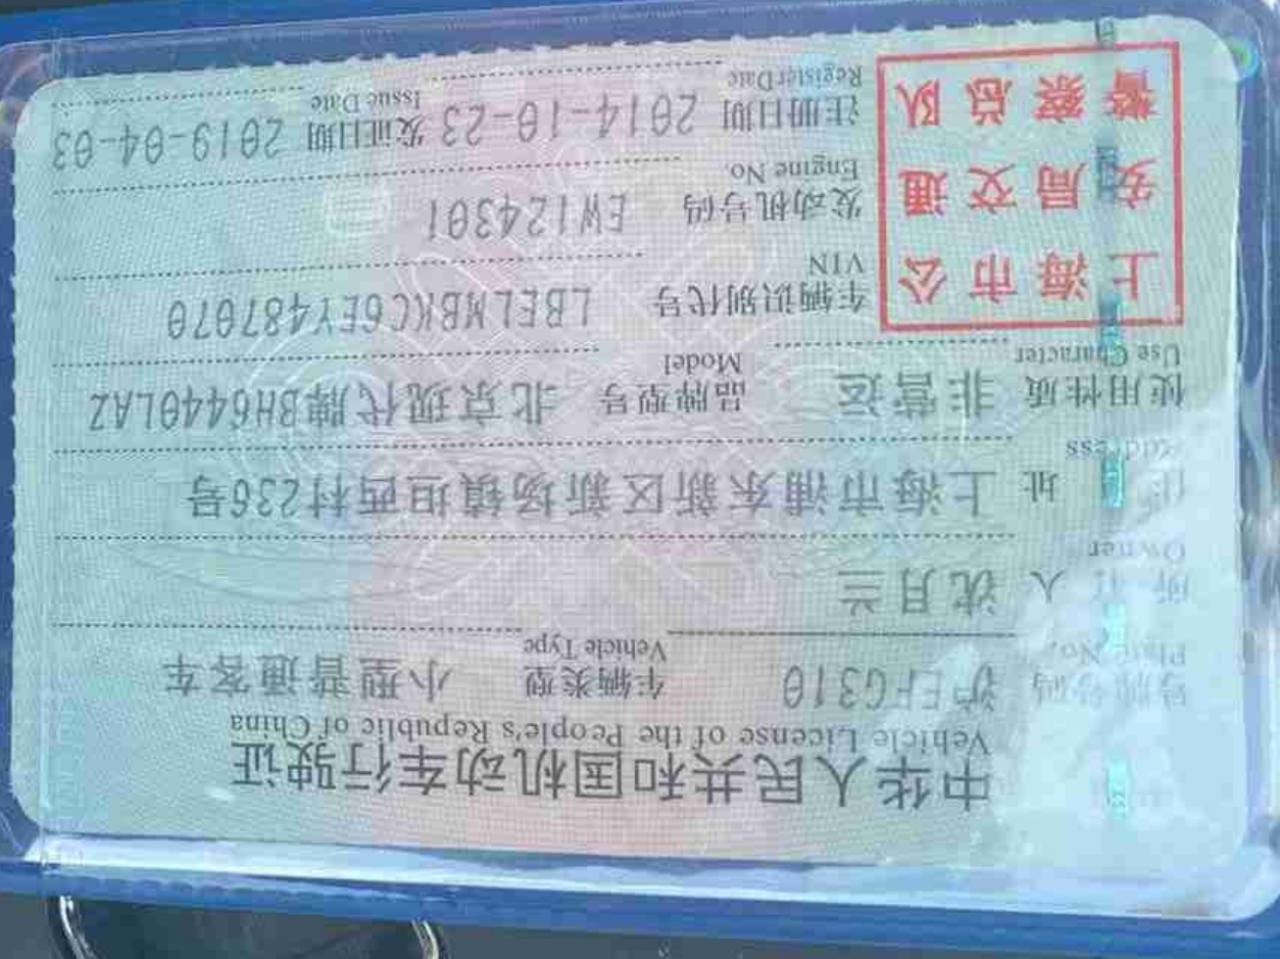 中华人民共和国机动车行驶证
Vehicle License of the People's Republic of China
号牌号码 沪EFG310 车辆类型 小型普通客车
Plate No. Vehicle Type
所有人 沈月兰
Owner
住址 上海市浦东新区新场镇坦西村236号
Address
使用性质 非营运 品牌型号 北京现代牌BH6440LAZ
Use Character Model
上海市公
安局交通
警察总队
车辆识别代号 LBELMBKC6EY487070
VIN
发动机号码 EW124301
Engine No.
注册日期 2014-10-23 发证日期 2019-04-03
Register Date Issue Date